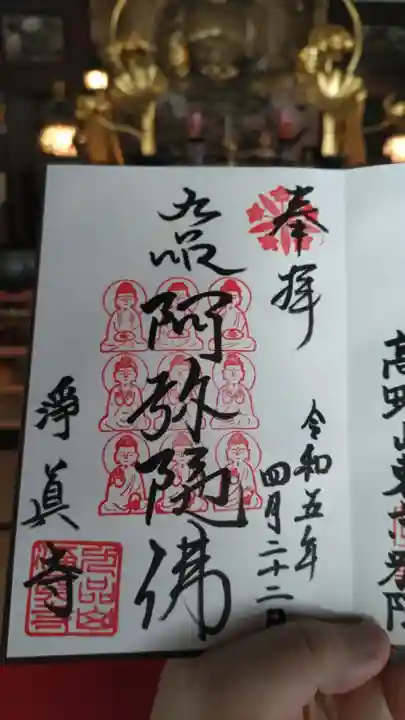 高野山東京別院
奉拝
令和五年
四月二十二日
九品
阿弥陀佛
淨眞寺